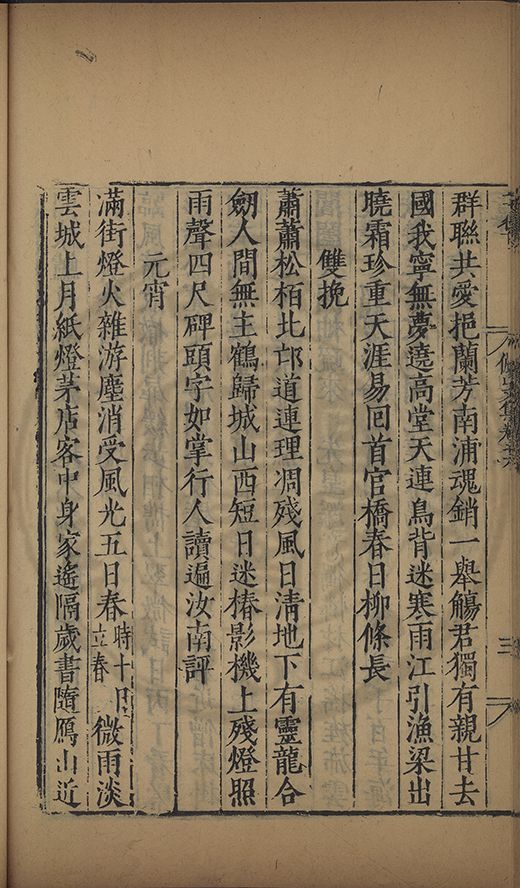 群聯共愛挹蘭芳南浦魂銷一舉觴君獨有親甘去
國我寧無夢遶高堂天連鳥背迷寒雨江引漁梁出
曉霜珍重天涯易囘首官橋春日柳條長
雙挽
蕭蕭松栢北邙道連理凋殘風日清地下有靈龍合
劒人間無主鶴歸城山西短日迷椿影機上殘燈照
雨聲四尺碑頭字如掌行人讀遍汝南評
元宵
滿街燈火雜游塵消受風光五日春時十日立春微雨淡
雲城上月紙燈茅店客中身家遙隔歲書隨鴈山近
三